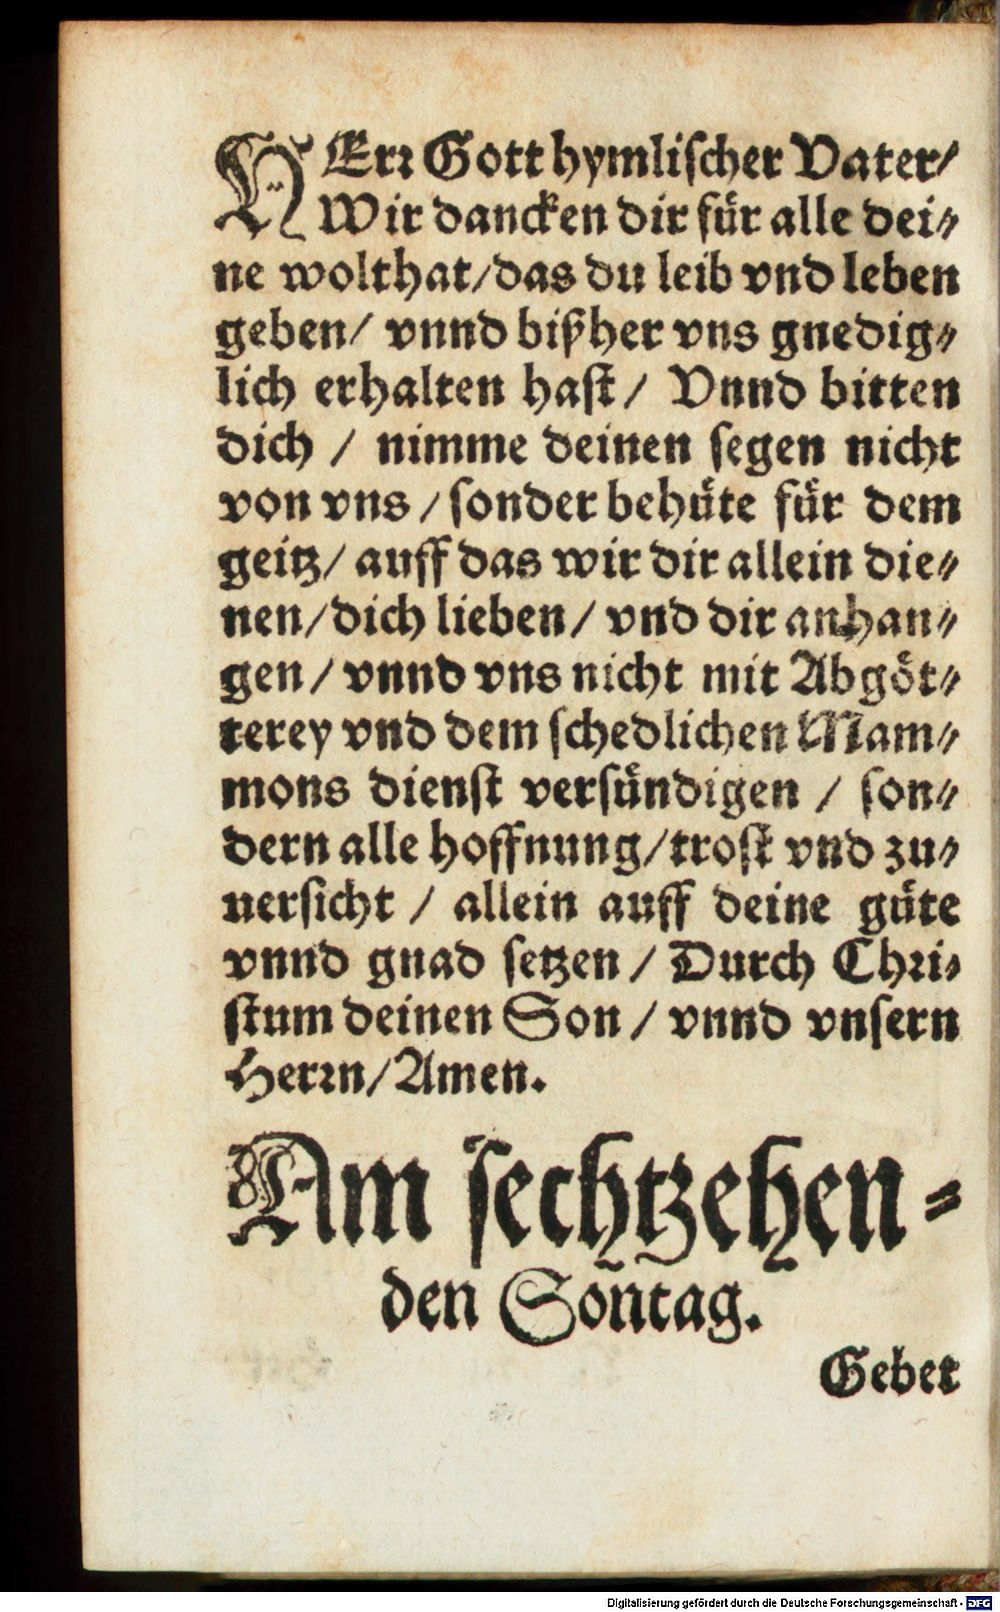 HErꝛ Gott hymlischer Vater/
Wir dancken dir für alle dei⸗
ne wolthat/das du leib vnd leben
geben/ vnnd bißher vns gnedig⸗
lich erhalten hast/ Vnnd bitten
dich / nimme deinen segen nicht
von vns / sonder behüte für dem
geitz/ auff das wir dir allein die⸗
nen/dich lieben/ vnd dir anhan⸗
gen / vnnd vns nicht mit Abgöt⸗
terey vnd dem schedlichen Mam⸗
mons dienst versündigen / son⸗
dern alle hoffnung/trost vnd zu⸗
uersicht / allein auff deine güte
vnnd gnad setzen / Durch Chꝛi⸗
stum deinen Son / vnnd vnsern
Herꝛn/Amen.
Am sechtzehen⸗
den Soñtag.
Gebet
Digitalisierung gefördert durch die Deutsche Forschungsgemeinschaft - DFG